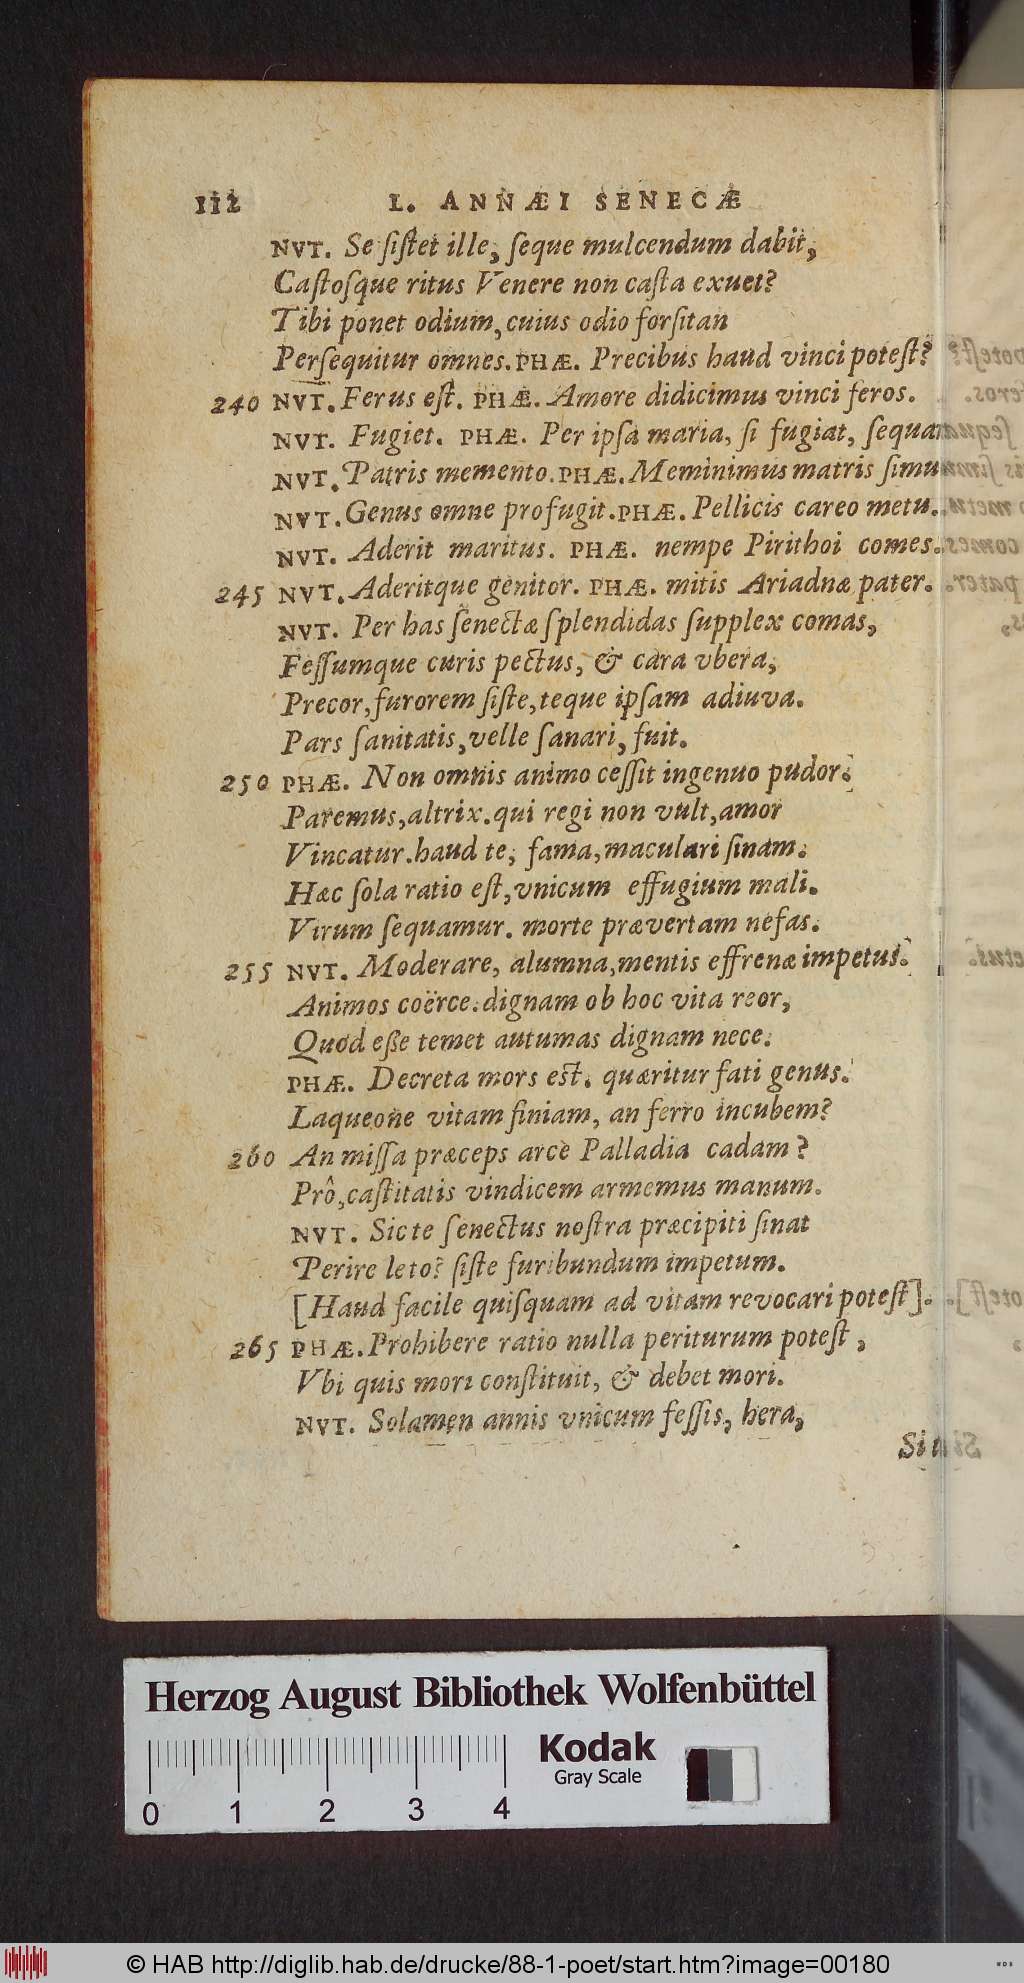 112 L. ANNÆI SENECÆ
NVT. Se ſiſtet ille, ſeque mulcendum dabit,
Caſtoſque ritus Venere non caſta exuet?
Tibi ponet odium, cuius odio forſitan
Perſequitur omnes. PHÆ. Precibus haud vinci poteſt?
240 NVT. Ferus eſt. PHÆ. Amore didicimus vinci feros.
NVT. Fugiet. PHÆ. Per ipſa maria, ſi fugiat, ſequar
NVT. Patris memento. PHÆ. Meminimus matris ſimu
NVT. Genus omne profugit. PHÆ. Pellicis careo metu.
NVT. Aderit maritus. PHÆ. nempe Pirithoi comes.
245 NVT. Aderitque genitor. PHÆ. mitis Ariadnæ pater.
NVT. Per has ſenectæ ſplendidas ſupplex comas,
Feſſumque curis pectus, & cara vbera,
Precor, furorem ſiſte, teque ipſam adiuva.
Pars ſanitatis, velle ſanari, fuit.
250 PHÆ. Non omnis animo ceſſit ingenuo pudor.
Paremus, altrix. qui regi non vult, amor
Vincatur. haud te, fama, maculari ſinam.
Hæc ſola ratio eſt, vnicum effugium mali.
Virum ſequamur. morte prævertam nefas.
255 NVT. Moderare, alumna, mentis effrenæ impetus.
Animos coërce. dignam ob hoc vita reor,
Quod eſſe temet autumas dignam nece.
PHÆ. Decreta mors est. quæritur fati genus.
Laqueone vitam finiam, an ferro incubem?
260 An miſſa præceps arce Palladia cadam?
Prô, caſtitatis vindicem armemus manum.
NVT. Sic te ſenectus noſtra præcipiti ſinat
Perire leto? ſiſte furibundum impetum.
[Haud facile quiſquam ad vitam revocari poteſt].
265 PHÆ. Prohibere ratio nulla periturum poteſt,
Vbi quis mori conſtituit, & debet mori.
NVT. Solamen annis vnicum feſſis, hera,
Si
Herzog August Bibliothek Wolfenbüttel
Kodak
Gray Scale
0 1 2 3 4
© HAB http://diglib.hab.de/drucke/88-1-poet/start.htm?image=00180